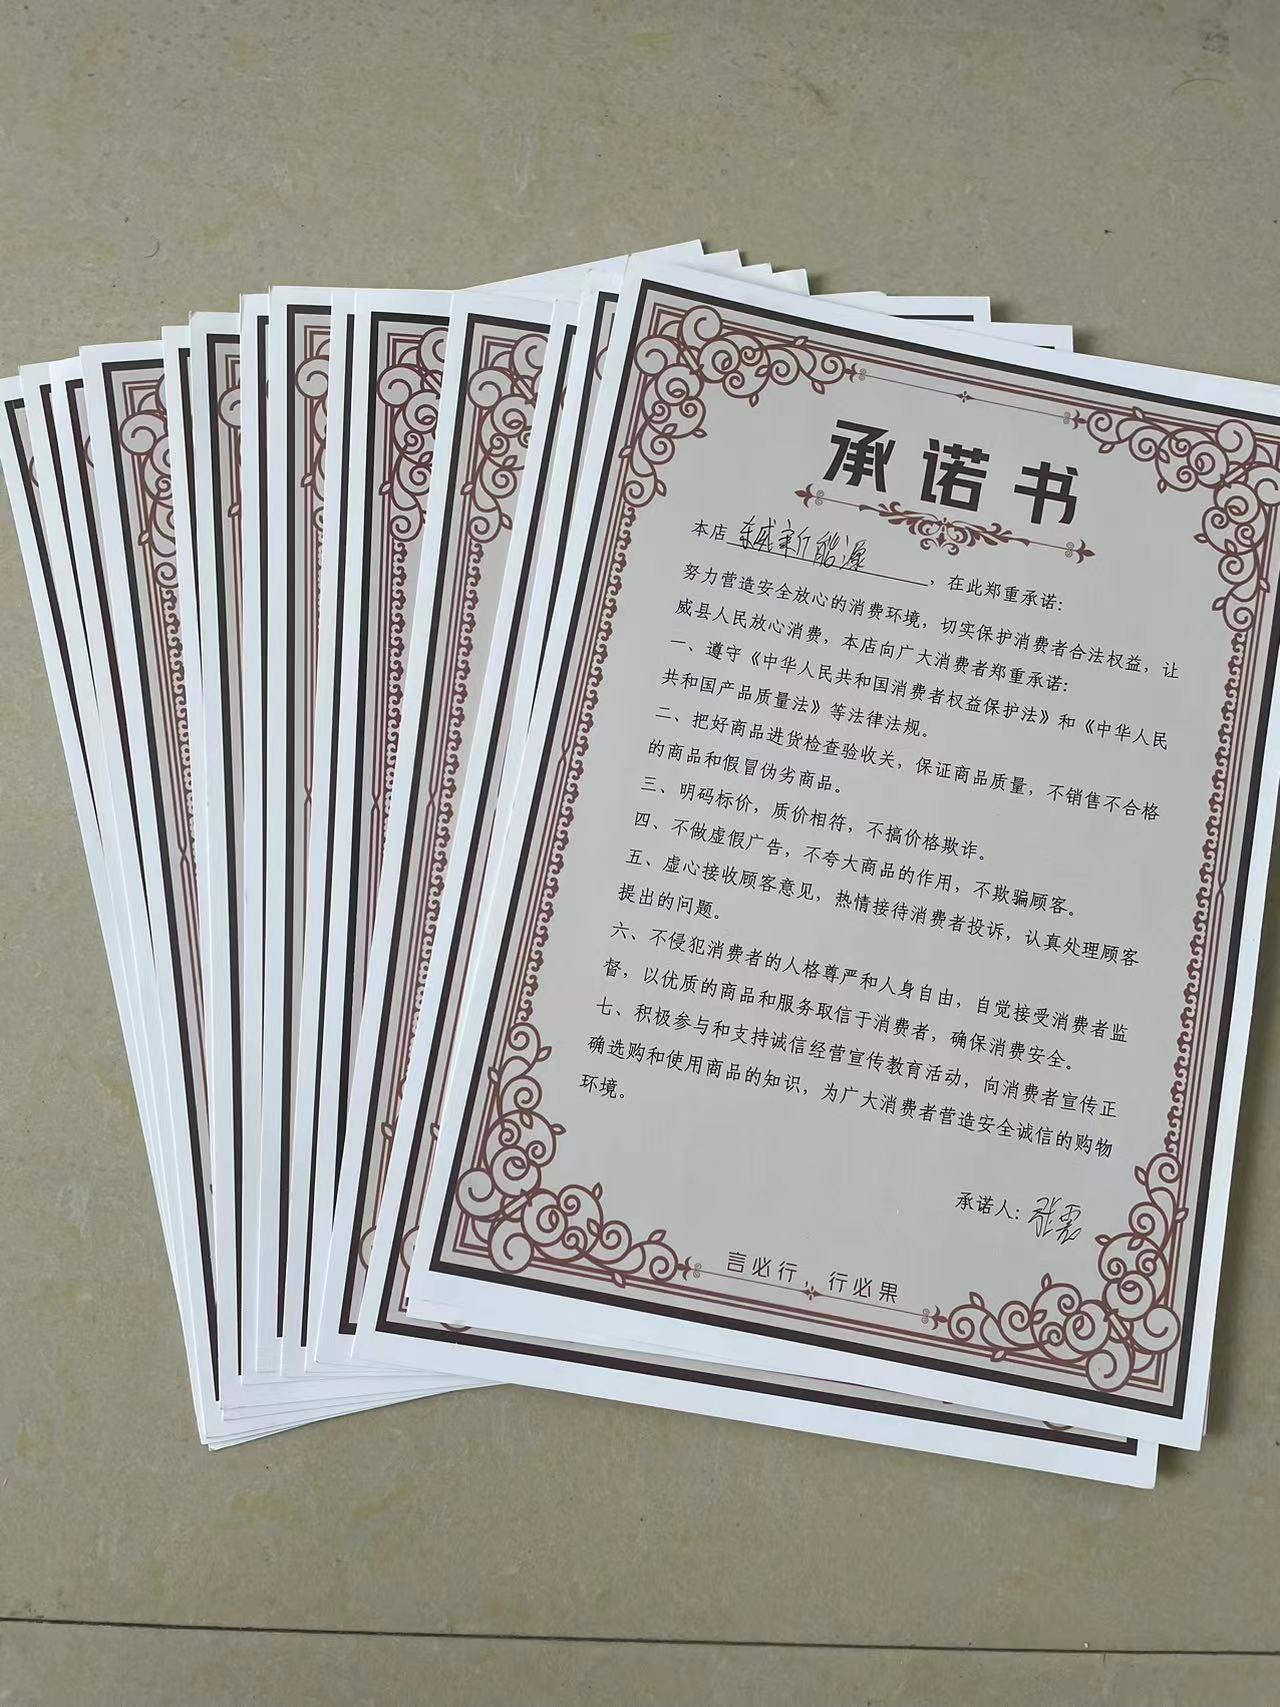 承诺书
本店 新能源 ，在此郑重承诺：
努力营造安全放心的消费环境，切实保护消费者合法权益，让
威县人民放心消费，本店向广大消费者郑重承诺：
一、遵守《中华人民共和国消费者权益保护法》和《中华人民
共和国产品质量法》等法律法规。
二、把好商品进货检查验收关，保证商品质量，不销售不合格
的商品和假冒伪劣商品。
三、明码标价，质价相符，不搞价格欺诈。
四、不做虚假广告，不夸大商品的作用，不欺骗顾客。
五、虚心接收顾客意见，热情接待消费者投诉，认真处理顾客
提出的问题。
六、不侵犯消费者的人格尊严和人身自由，自觉接受消费者监
督，以优质的商品和服务取信于消费者，确保消费安全。
七、积极参与和支持诚信经营宣传教育活动，向消费者宣传正
确选购和使用商品的知识，为广大消费者营造安全诚信的购物
环境。
承诺人：张
言必行，行必果